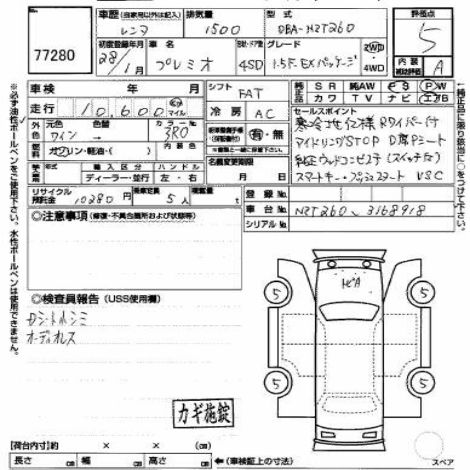 77280
車歴 (自家用以外は記入) レンヌ
排気量 1500
型式 DBA-NZT260
評価点 5
初度登録年月 28/1月
車名 プレミオ
ドア・形状 4SD
グレード 1.5F.EXパッケージ
2WD・4WD
内装補助評価 A
車検 年 月
シフト FAT
走行 10,600 km マイル
冷房 AC
純正品 SR 純AW PS PW
カワ TV ナビ エアB
外装 元色 ワイン→ 色替 カラーNo. 3R0
燃料 ガソリン・軽油・( ) 内装色
有・無
セールスポイント
寒冷地仕様 Rワイパー付
アイドリングSTOP D席Pシート
純正ウッドコンビ2チ(スイッチ付)
スマートキー・プッシュスタート VSC
輸入区分 ハンドル
ディーラー・並行 左・右
名義変更期限 月 日
リサイクル預託金 10280円
乗車定員 5人
積載量 t
登録No.
車台No. NZT260-3168918
シリアルNo.
◎注意事項 (修復・不具合箇所および状態)
◎検査員報告 (USS使用欄)
カシートルシミ
オーディオレス
カギ施錠
トビA
5
5
5
5
スペア
【荷台内寸】 × ×
長さ cm 幅 cm 高さ cm ←(車検証上の寸法)
※必ず油性ボールペンをご使用下さい。水性ボールペンは使用できません。